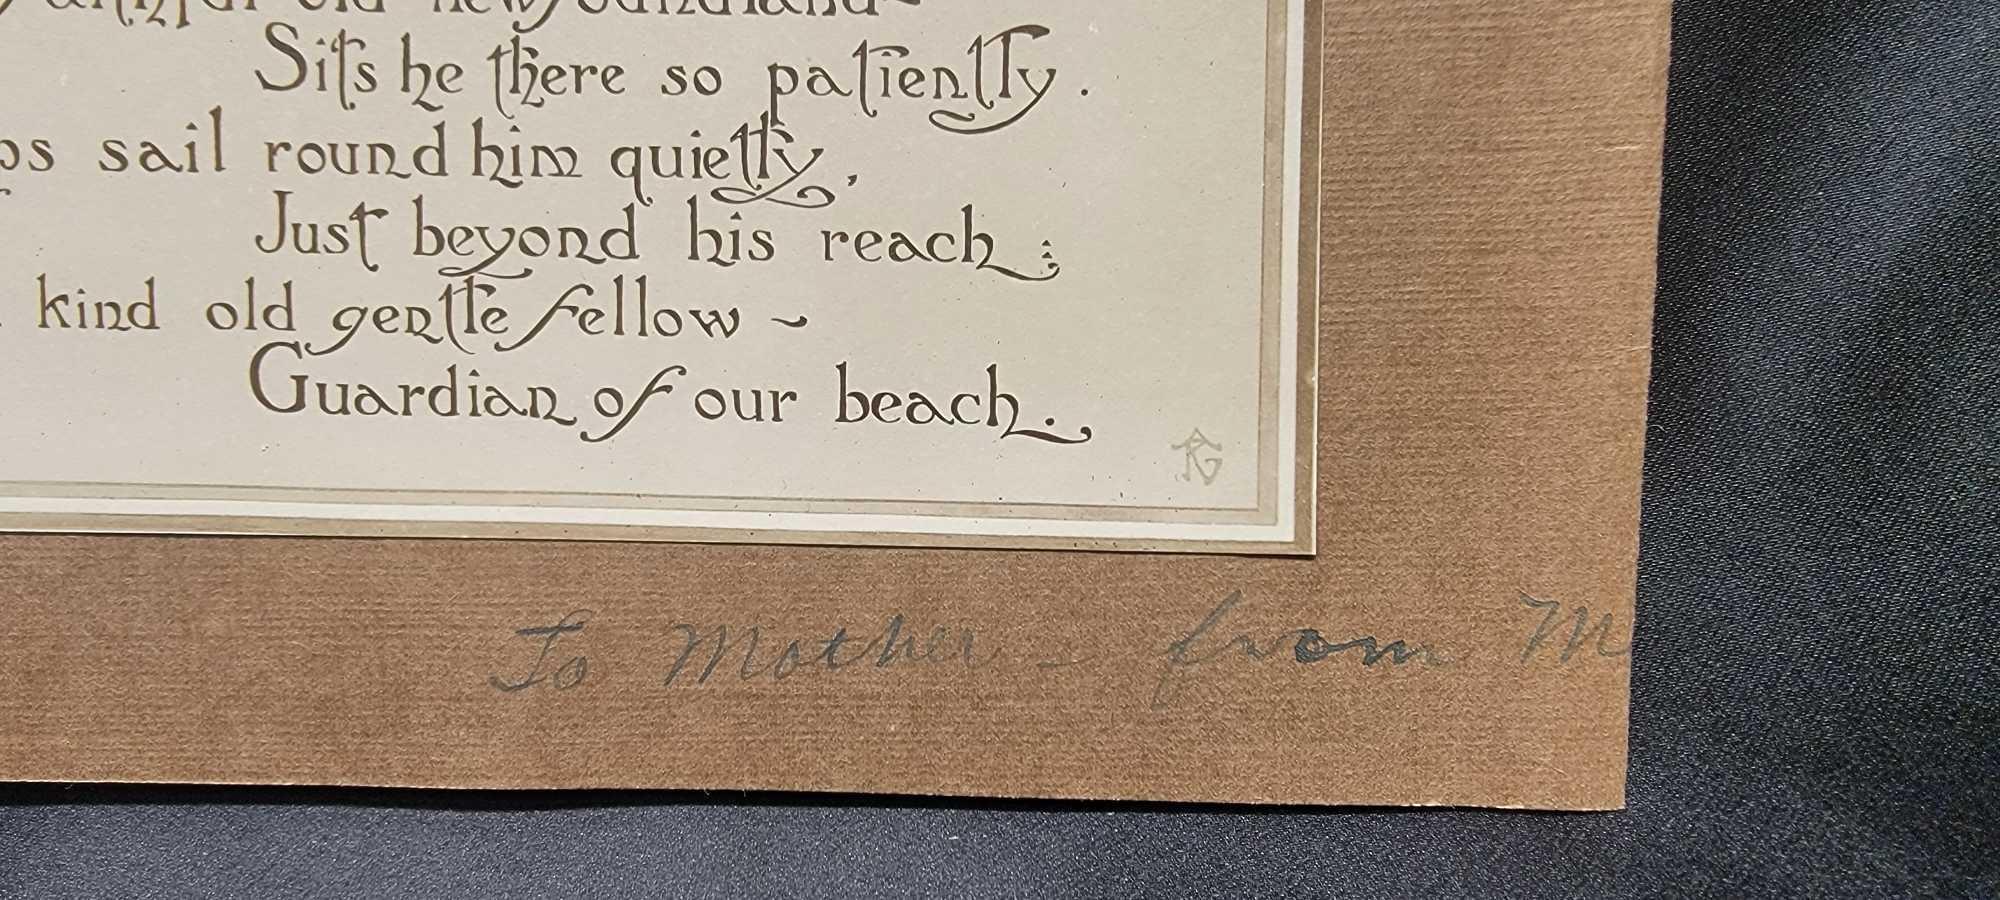 old newfoundland~
Sits he there so patiently.
sail round him quietly,
Just beyond his reach;
kind old gentle fellow ~
Guardian of our beach.
To Mother - from M